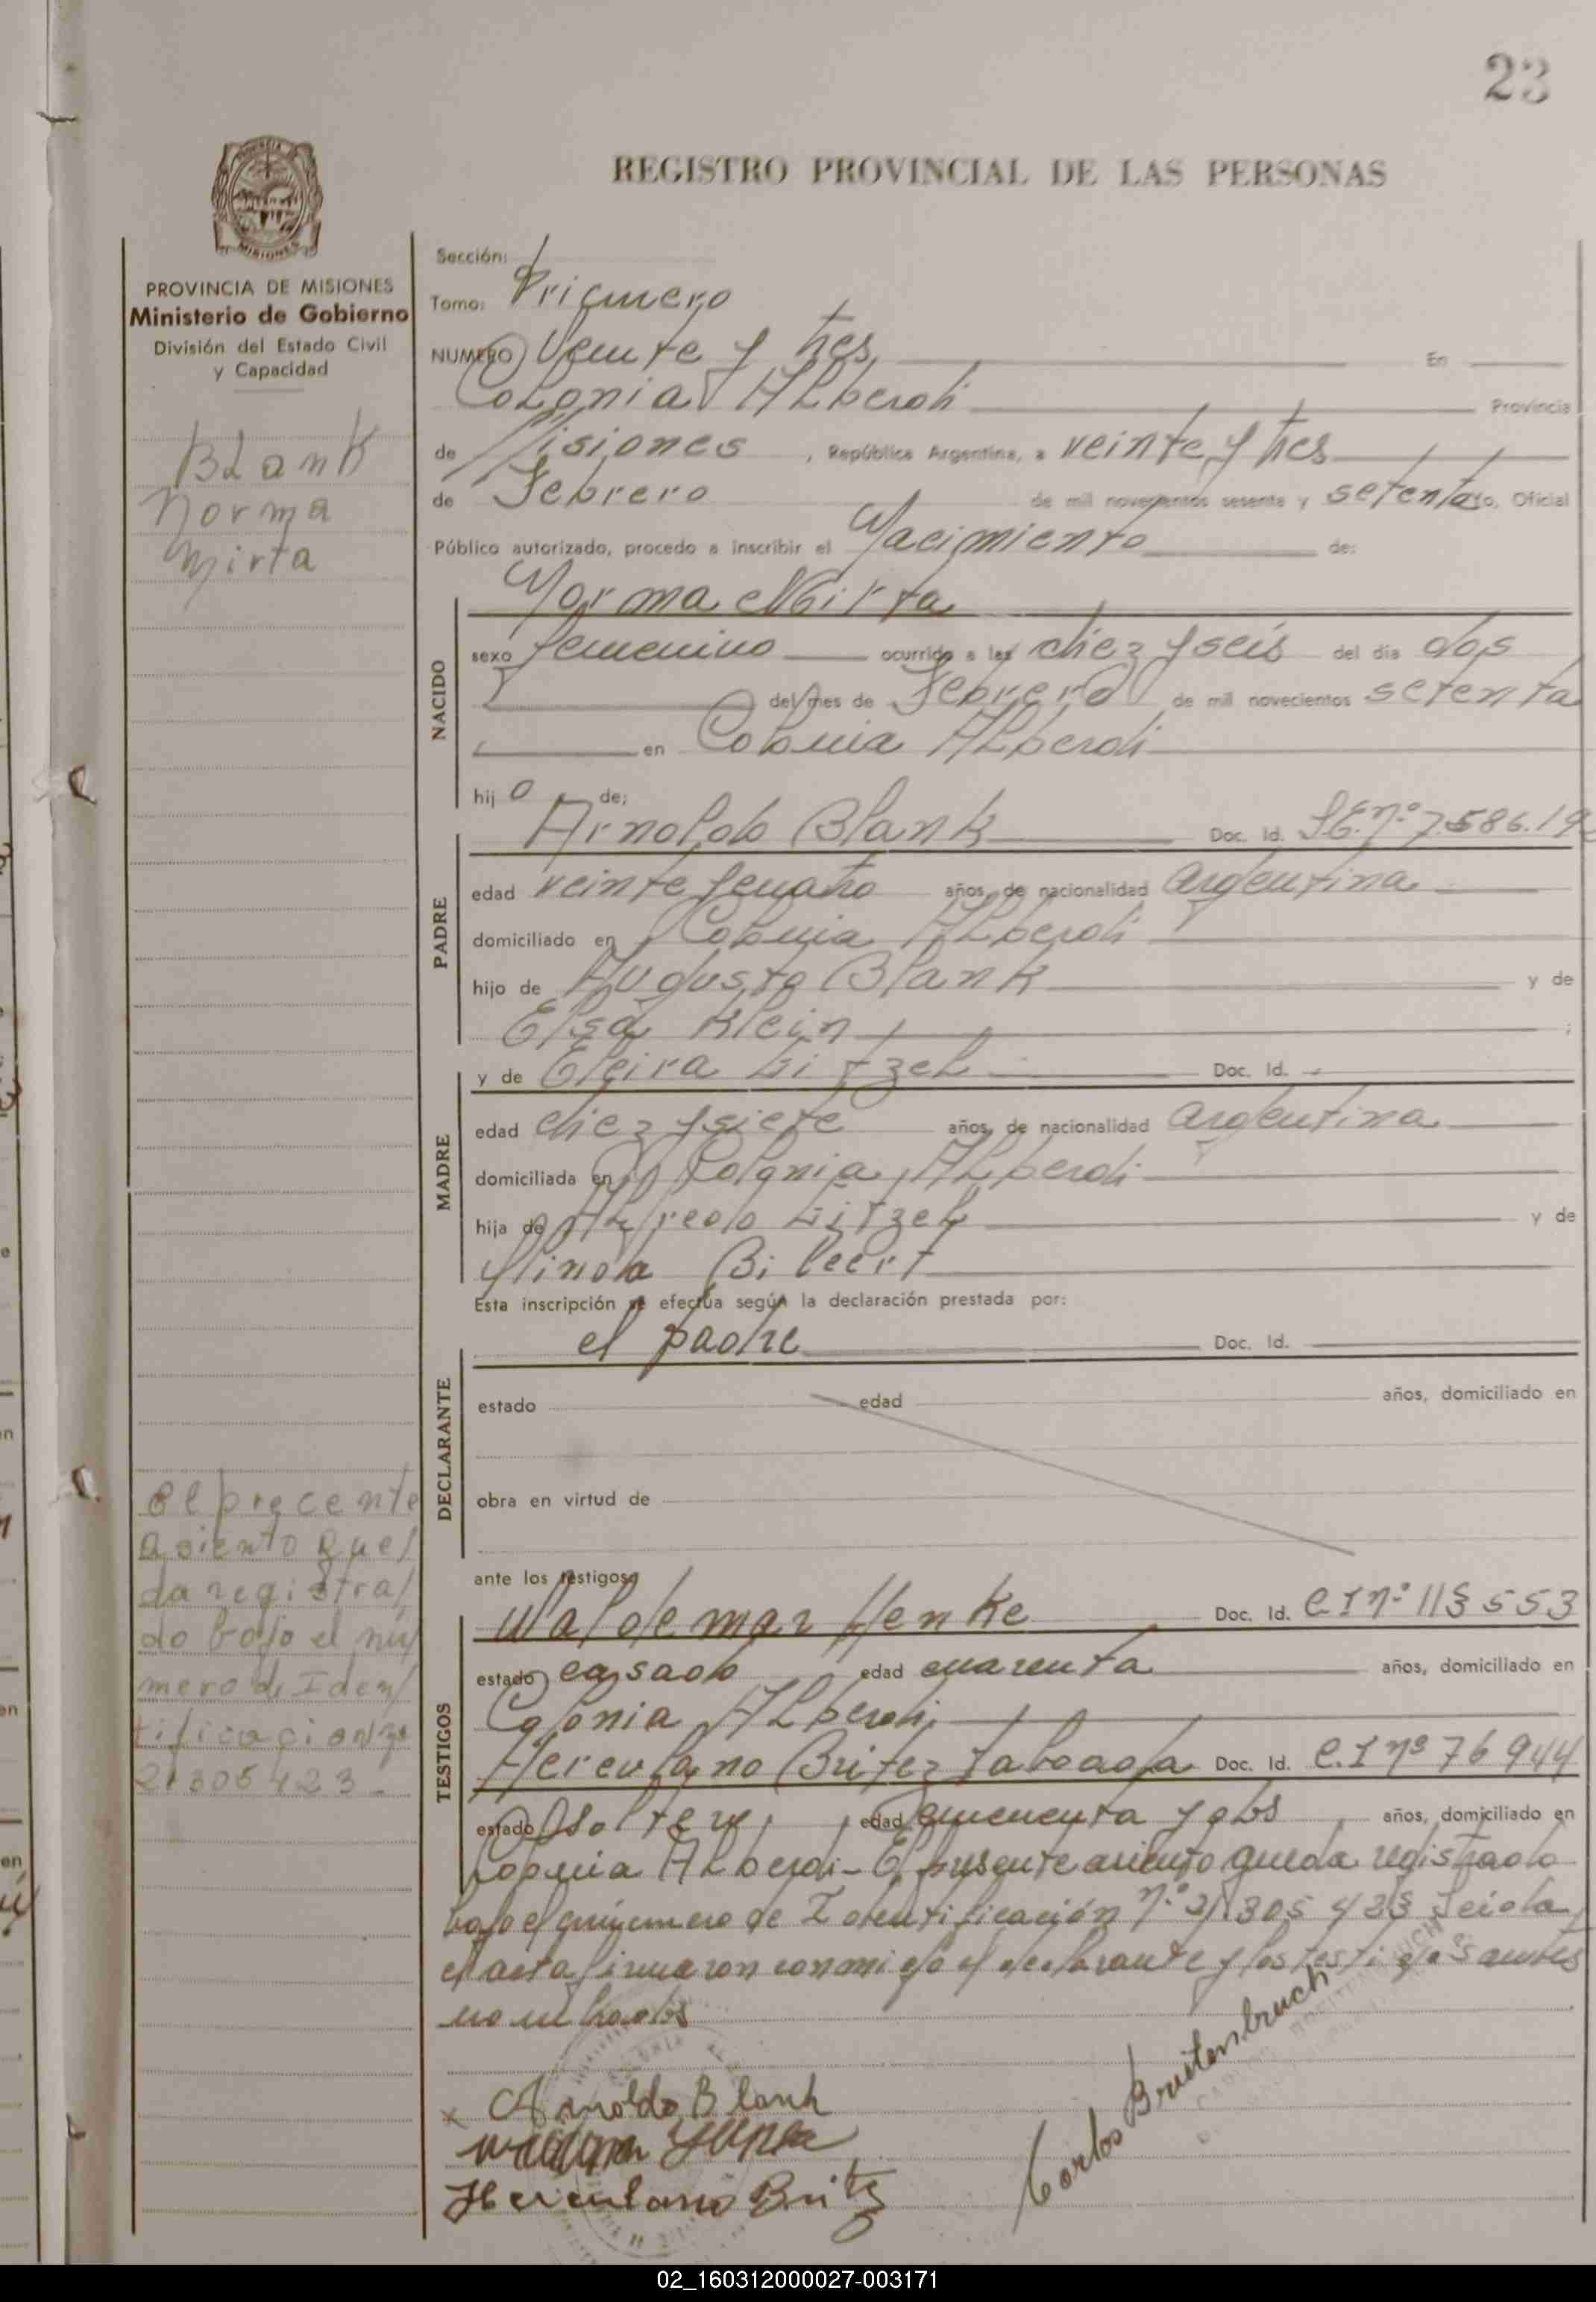 23
REGISTRO PROVINCIAL DE LAS PERSONAS
MISIONES
PROVINCIA DE MISIONES
Ministerio de Gobierno
División del Estado Civil
y Capacidad
Blank
Norma
Mirta
Sección:
Tomo: Primero
NUMERO Veinte y tres En
Colonia Alberdi Provincia
de Misiones, República Argentina, a veinte y tres
de Febrero de mil novecientos sesenta y setenta yo, Oficial
Público autorizado, procedo a inscribir el Nacimiento de:
Norma Mirta
NACIDO
sexo femenino ocurrido a las diez y seis del día dos
del mes de Febrero de mil novecientos setenta
en Colonia Alberdi
hij a de;
PADRE
Arnoldo Blank Doc. Id. L.E. Nº 7.586.19
edad veinte y cuatro años, de nacionalidad argentina
domiciliado en Colonia Alberdi
hijo de Augusto Blank y de
Elsa Klein ;
MADRE
y de Elvira Litzel Doc. Id.
edad diez y siete años, de nacionalidad argentina
domiciliada en Colonia Alberdi
hija de Alfredo Litzel y de
Olinda
Esta inscripción se efectúa según la declaración prestada por:
el padre Doc. Id.
DECLARANTE
estado edad años, domiciliado en
obra en virtud de
El precente
asiento que/
da registra/
do bajo el nú/
mero de Iden/
tificacion Nº
21305423.-
ante los testigos:
TESTIGOS
Waldemar Henke Doc. Id. C.I Nº 113553
estado casado edad cuarenta años, domiciliado en
Colonia Alberdi,
Herculano Britez Taboada Doc. Id. C.I Nº 76944
estado soltero, edad cincuenta y dos años, domiciliado en
Colonia Alberdi- El presente asiento queda registrado
bajo el número de Identificación Nº 21.305 423 Leida
el acta firmaron conmigo el declarante y los testigos antes
nombrados
x Arnoldo Blank
Herculano Britez
Carlos Breitenbruch
02_160312000027-003171